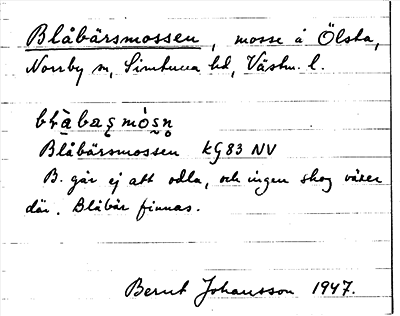 Blåbärsmossen, mosse å Ölsta,
Norrby sn, Simtuna hd, Västm. l.
bḷàbaʂmòsn̥
Blåbärsmossen kG83 NV
B. går ej att odla, och ingen skog växer
där. Blåbär finnas.
Bernt Johansson 1947.